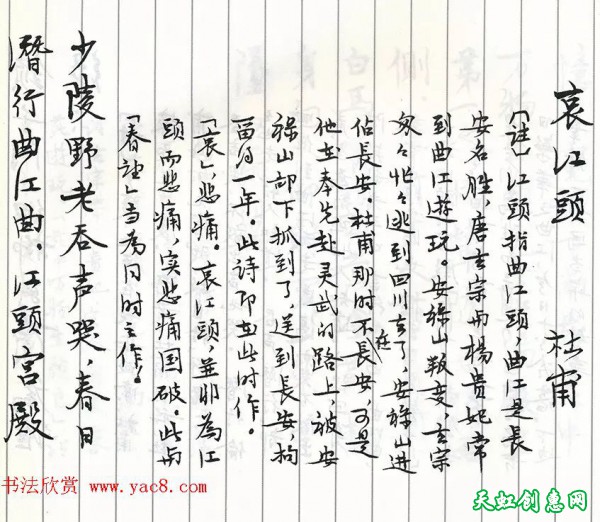 哀江頭 杜甫
(註)江頭指曲江頭,曲江是長
安名胜,唐玄宗与楊貴妃常
到曲江遊玩。安祿山叛变,玄宗
匆々忙々逃到四川去了,安祿山进
佔長安。杜甫那时不在長安,可是
他在奉先赴灵武的路上,被安
祿山部下抓到了,送到長安,拘
留約一年。此詩即在此时作。
「哀」,悲痛。哀江頭,並非為江
頭而悲痛,实悲痛国破。此与
「春望」当為同时之作!
少陵野老吞声哭,春日
潛行曲江曲。江頭宮殿
书法欣赏 www.yac8.com
天虹创意网